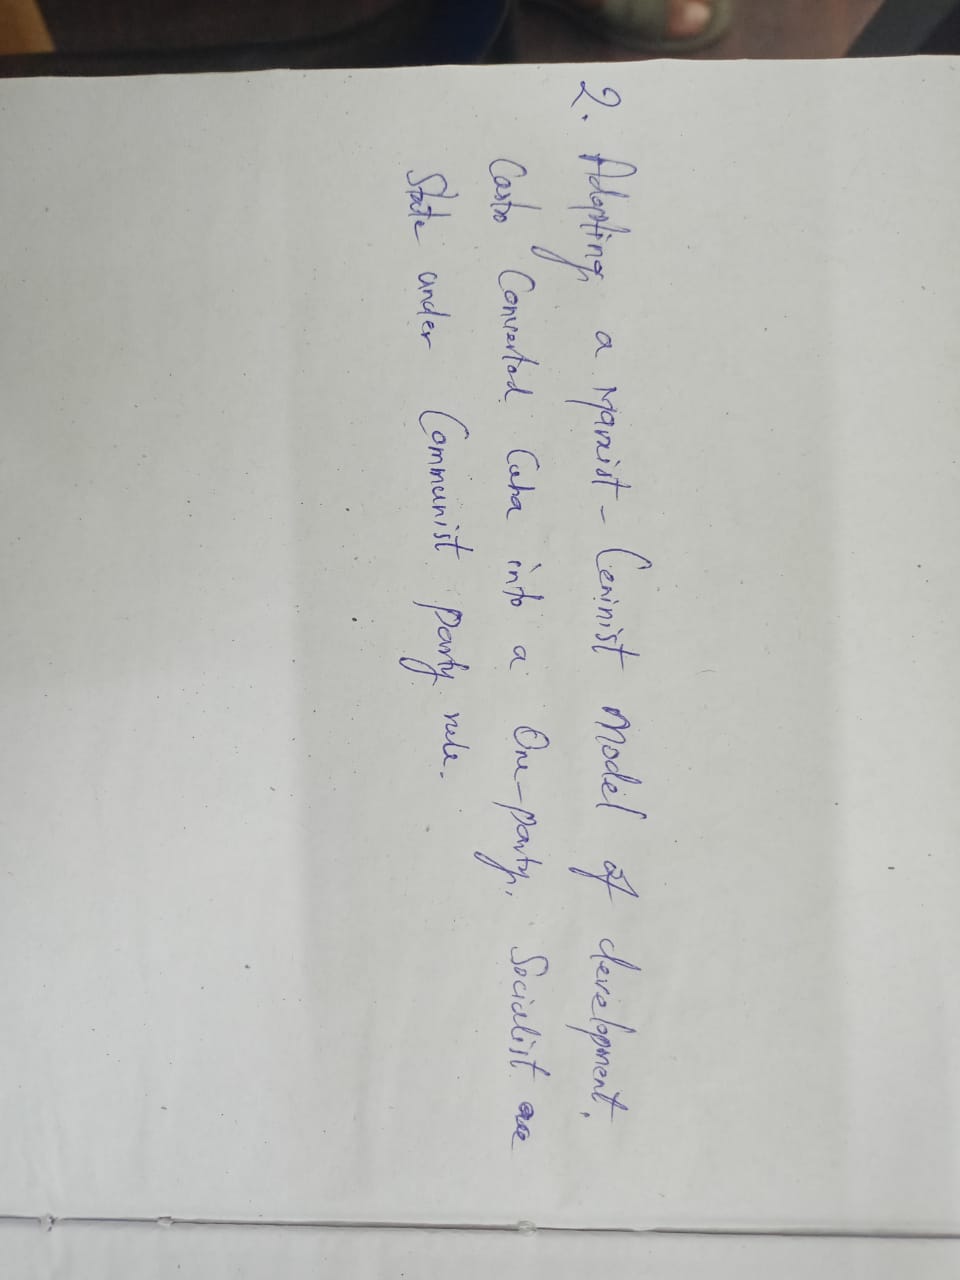 2. Adopting a Marxist-Leninist Model of development,
Castro Converted Cuba into a One-party, Socialist
State under Communist party rule.